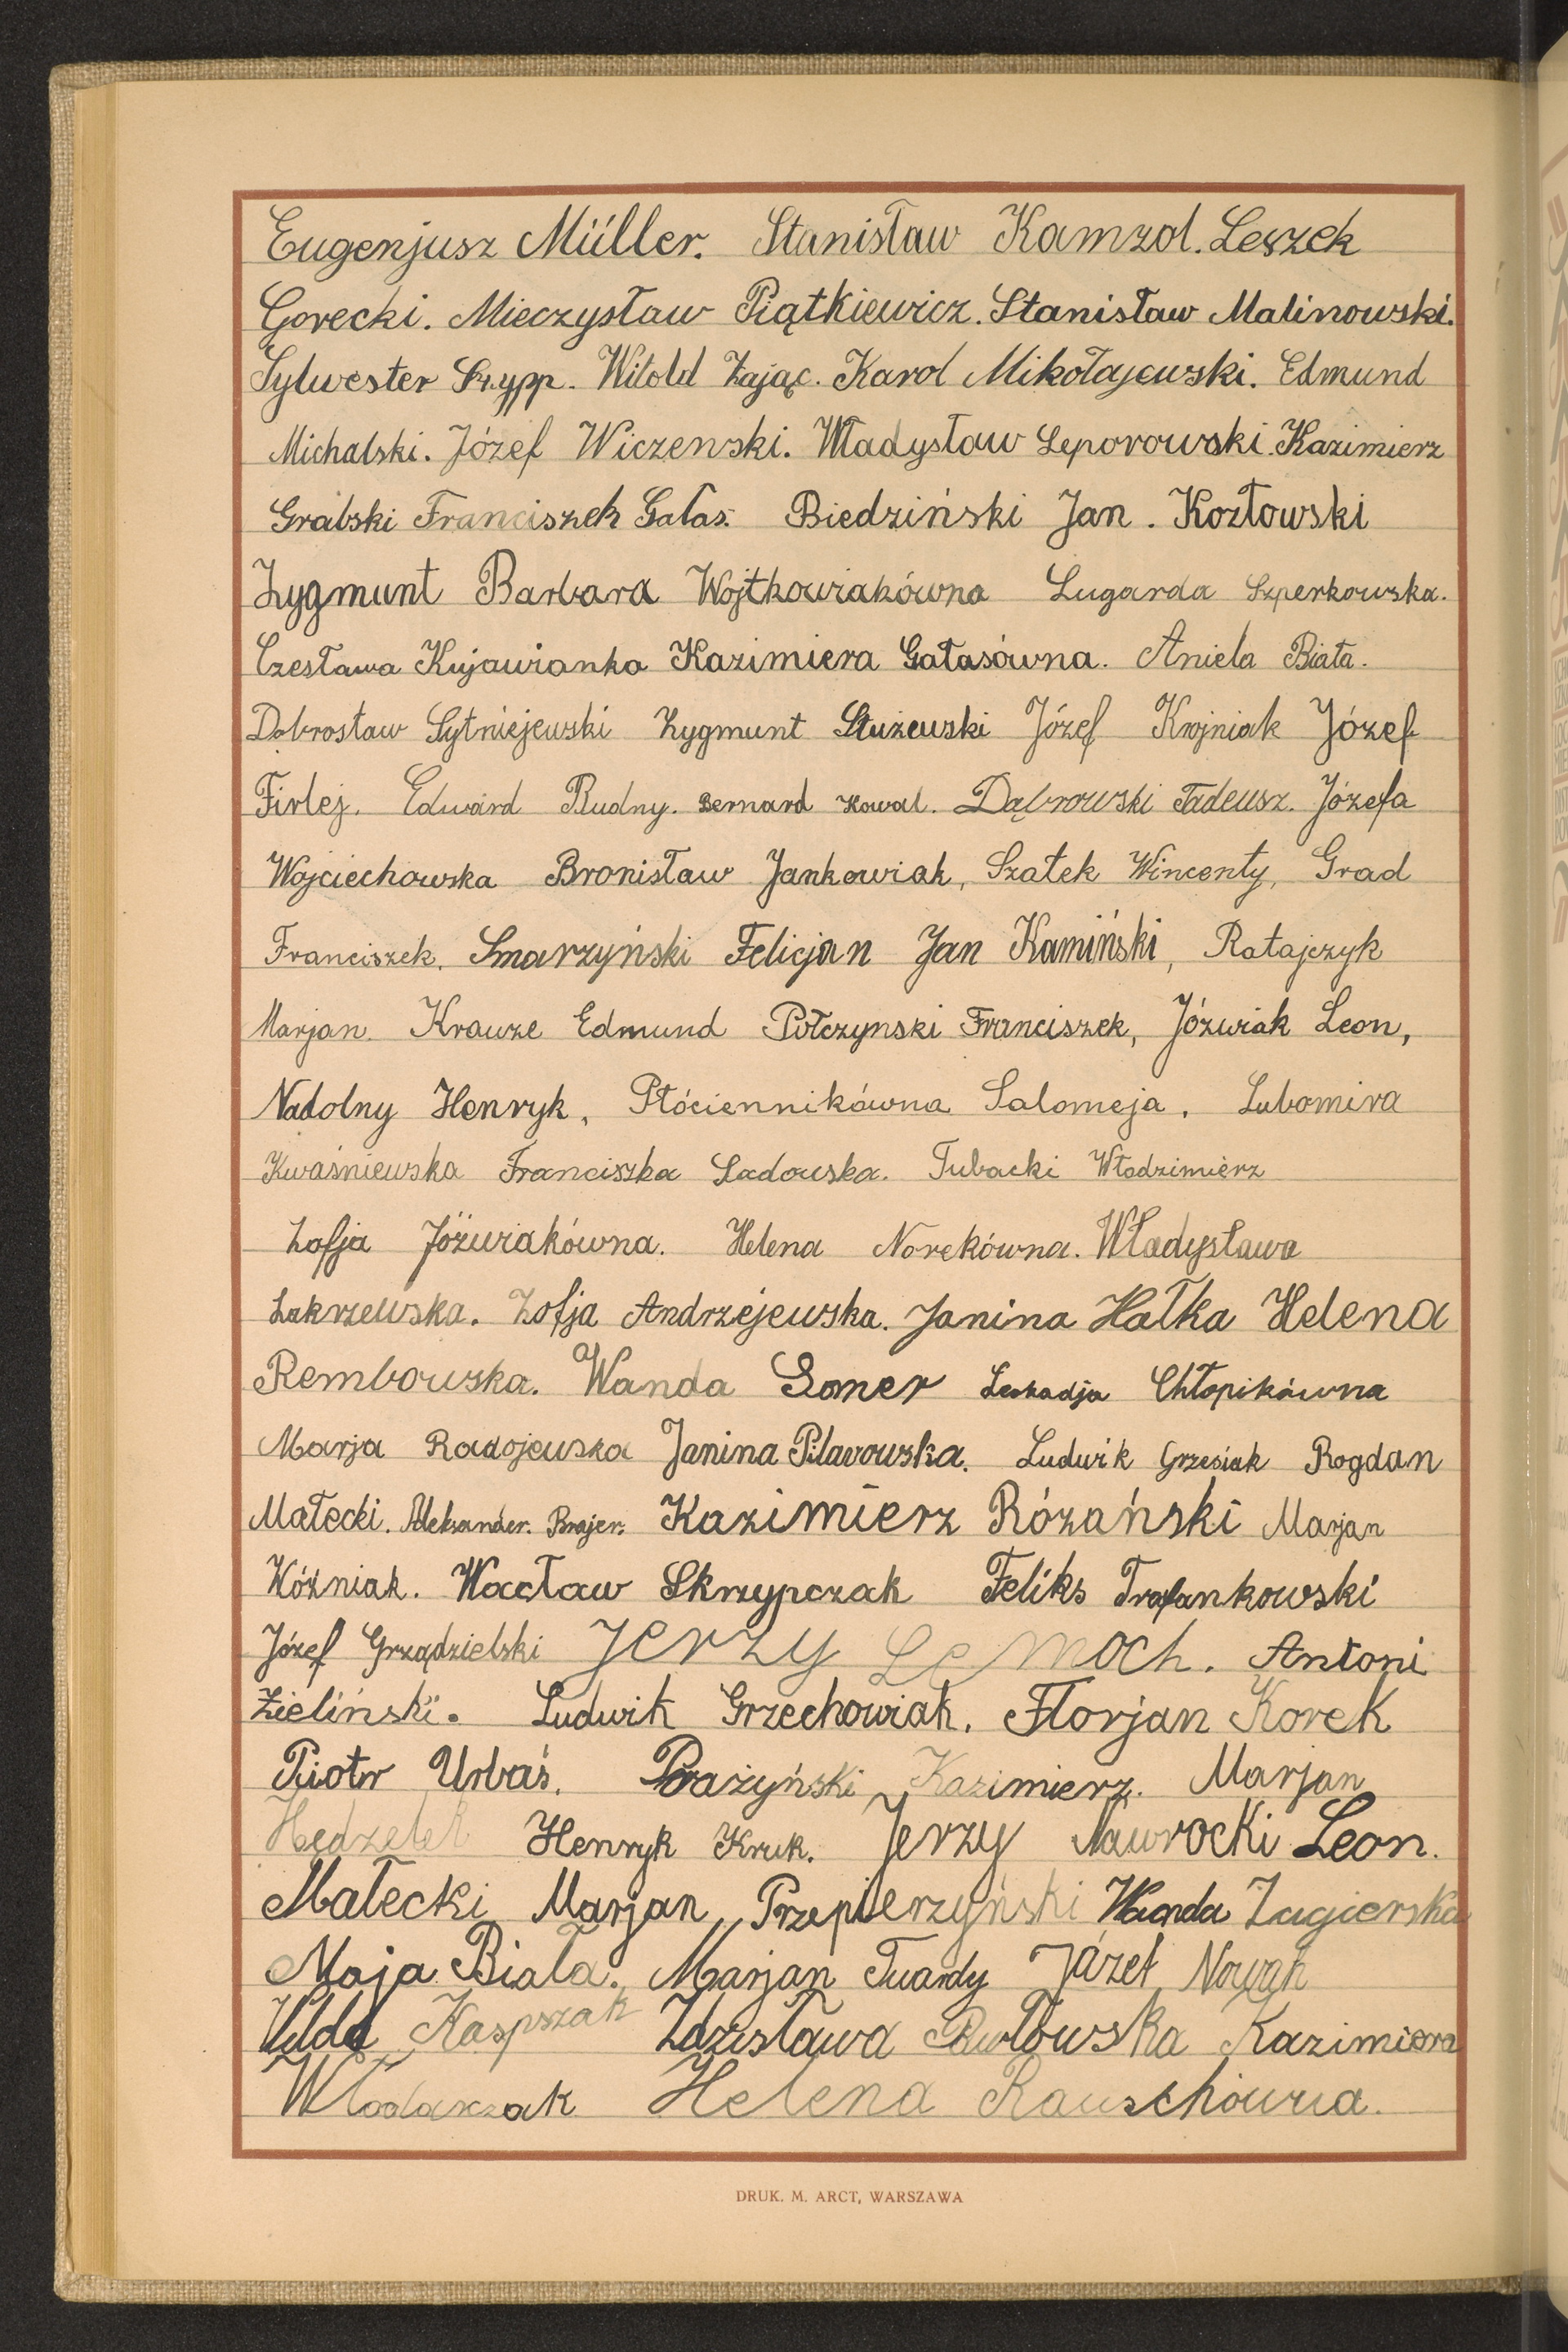 Eugenjusz Müller. Stanisław Kamzol. Leszek
Gorecki. Mieczysław Piątkiewicz. Stanisław Malinowski.
Sylwester Szypp. Witold Zając. Karol Mikołajewski. Edmund
Michalski. Józef Wiczenski. Władysław Leporowski. Kazimierz
Grabski Franciszek Gałas. Biedziński Jan. Kozłowski
Zygmunt Barbara Wojtkowiakówna Lugarda Szperkowska.
Czesława Kujawianka Kazimiera Gałasówna. Aniela Biała.
Dobrosław Sytniejewski Zygmunt Służewski Józef Krojniak Józef
Firlej. Edward Budny. Bernard Kowal. Dąbrowski Tadeusz. Józefa
Wojciechowska Bronisław Jankowiak, Szałek Wincenty, Grad
Franciszek, Smarzyński Felicjan Jan Kamiński, Ratajczyk
Marjan. Krauze Edmund Połczynski Franciszek, Józwiak Leon,
Nadolny Henryk, Płóciennikówna Salomeja, Lubomira
Kwaśniewska Franciszka Sadowska. Tubacki Włodzimierz
Zofja Jóżwiakówna. Helena Norekówna. Władysława
Zakrzewska. Zofja Andrzejewska. Janina Hałka Helena
Rembowska. Wanda Somer Leokadja Chłopikówna
Marja Radojewska Janina Pilavowska. Ludwik Grzesiak Bogdan
Małecki. Aleksander. Brajer. Kazimierz Rózański Marjan
Wóźniak. Wacław Skrzypczak Feliks Trafankowski
Józef Grządzielski Jerzy Lemoch. Antoni
Zieliński. Ludwik Grzechowiak. Florjan Korek
Piotr Urbaś. Prażyński Kazimierz. Marjan
Hędzelek Henryk Kruk. Jerzy Nawrocki Leon.
Małecki Marjan Przepierzyński Wanda Zagierska
Maja Biała. Marjan Twardy Józef Nowak
Kaspszak Zdzisława Pawłowska Kazimiera
Włodarczak Helena Rauschówna.
DRUK. M. ARCT, WARSZAWA